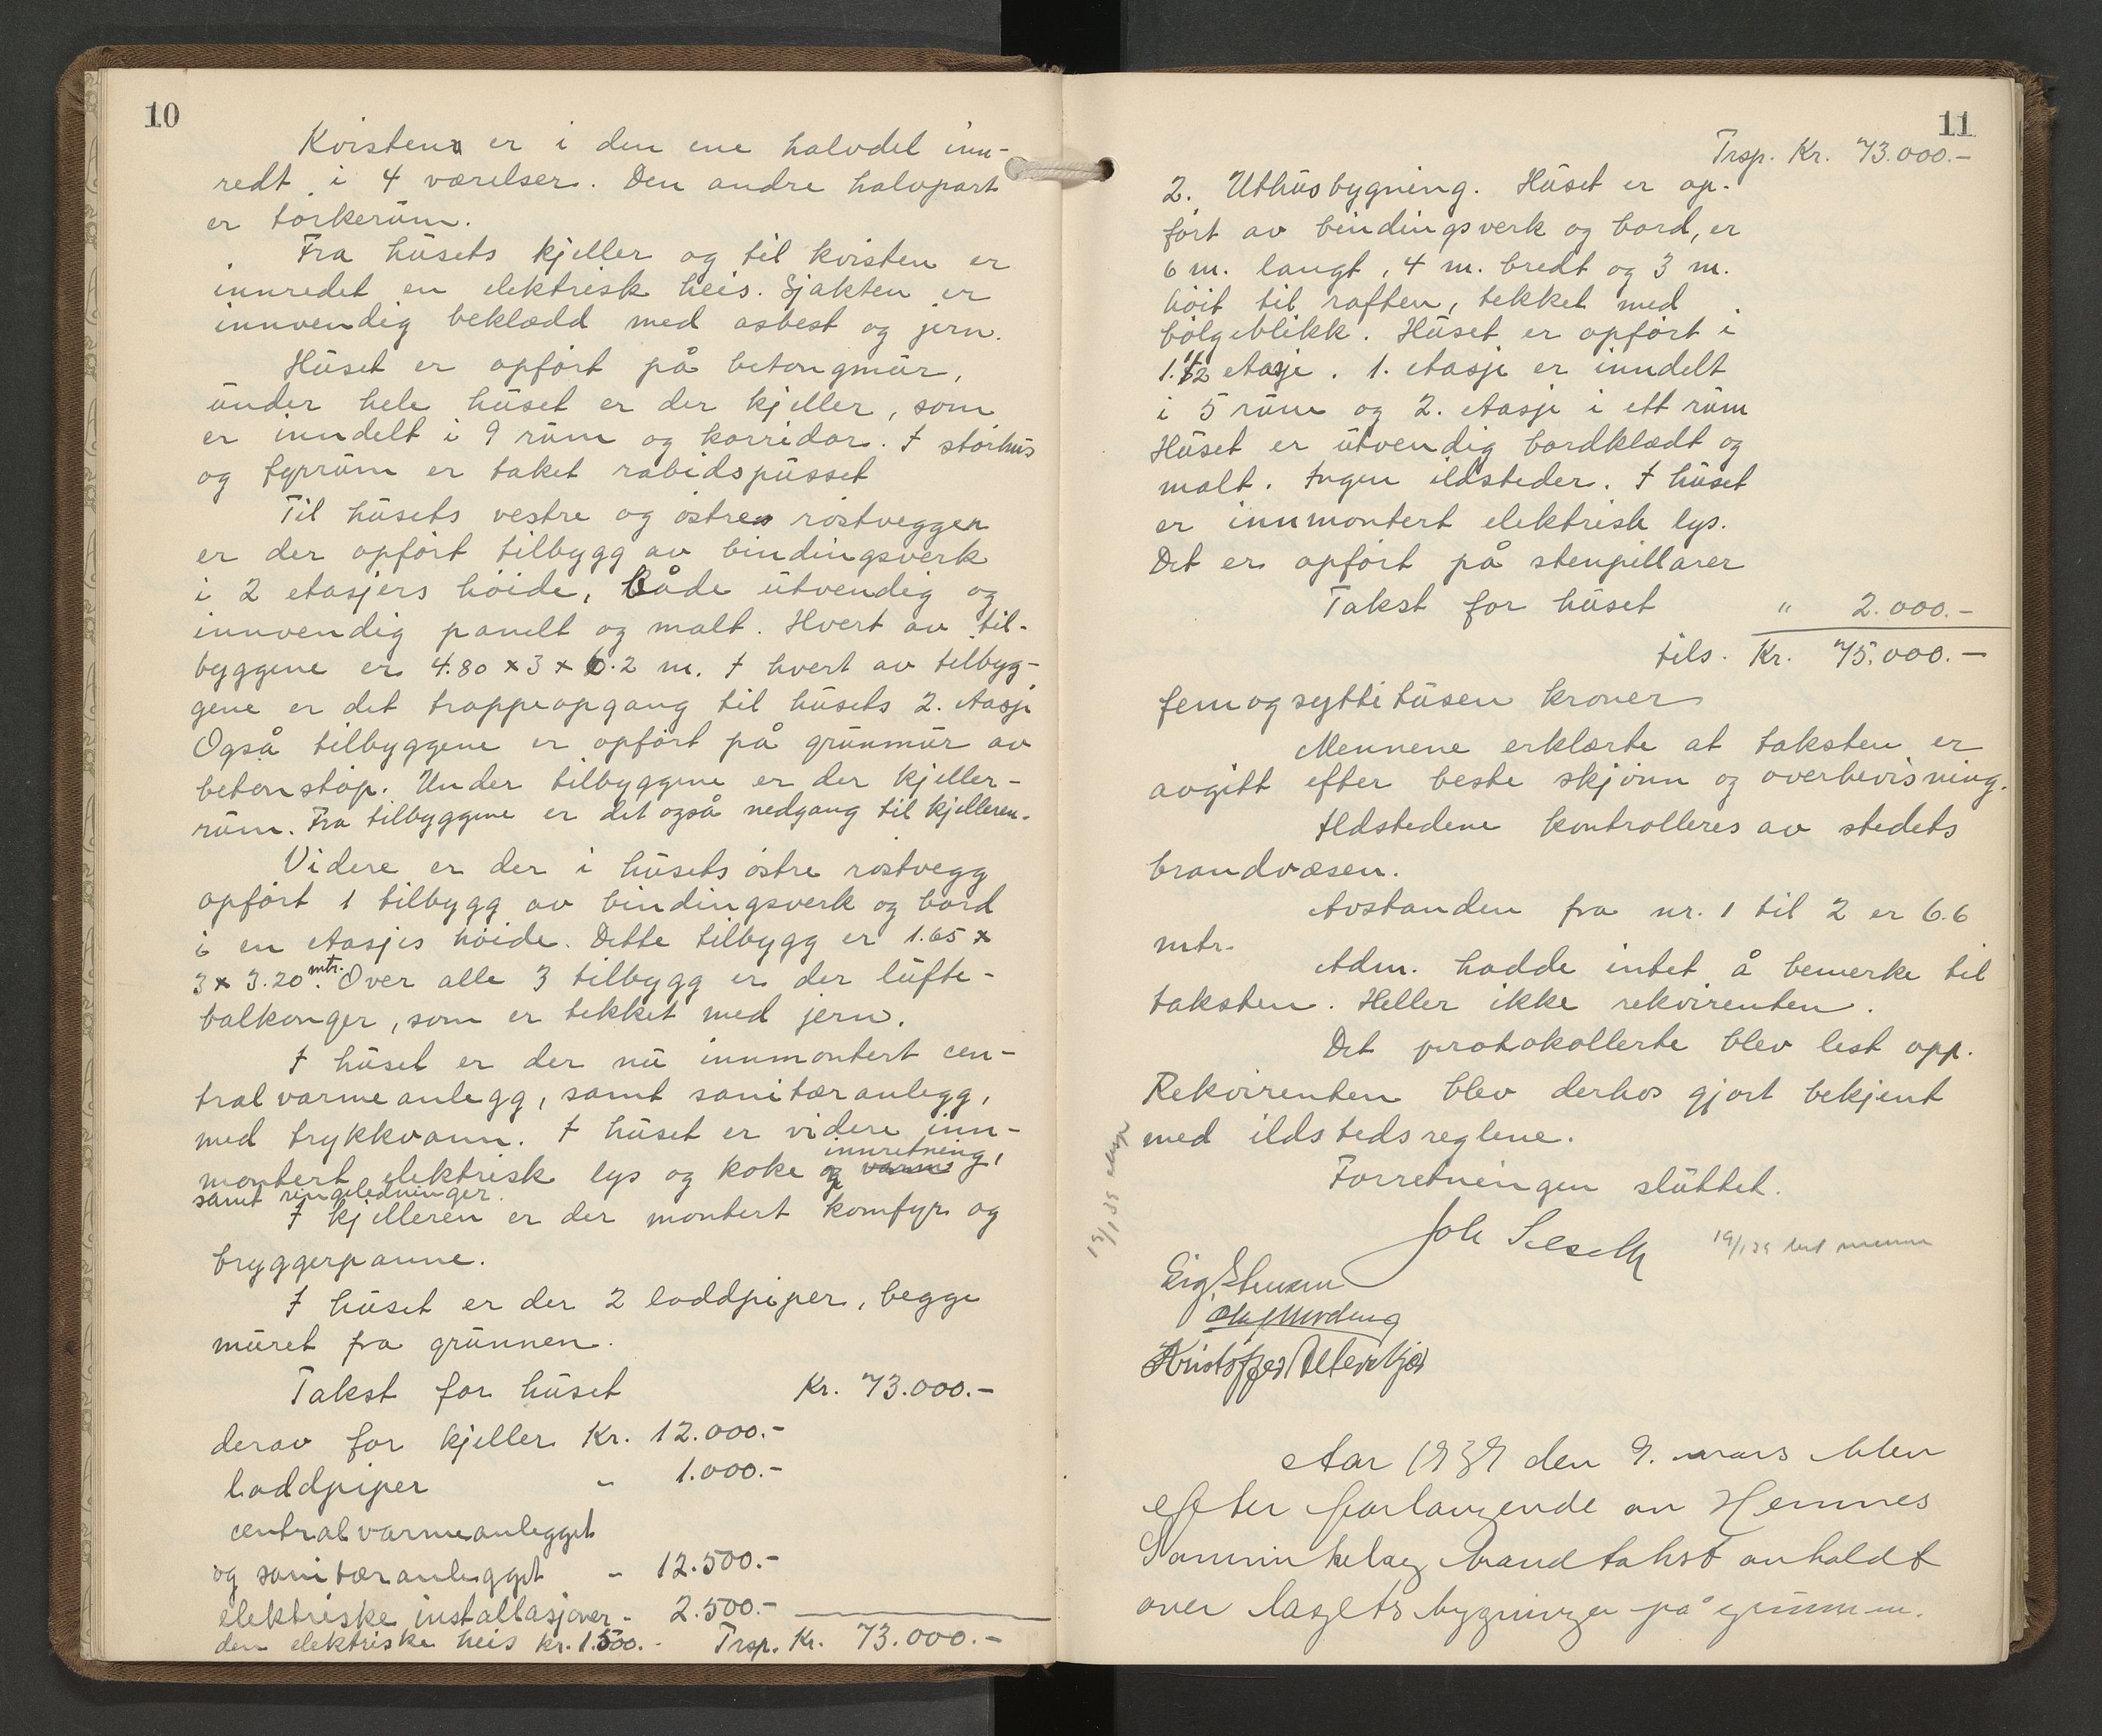 10
Kvisten er i den ene halvdel inn-
redt i 4 værelser. Den andre halvpart
er tørkerum.
Fra husets kjeller og til kvisten er
innredet en elektrisk heis. Sjakten er
innvendig beklædd med asbest og jern.
Huset er opført på betongmur,
under hele huset er der kjeller, som
er inndelt i 9 rum og korridor. I storhus
og fyrrum er taket rabidspusset
Til husets vestre og østre røstvegger
er der opført tilbygg av bindingsverk
i 2 etasjers høide, både utvendig og
innvendig panelt og malt. Hvert av til-
byggene er 4.80 x 3 x 6.2 m. I hvert av tilbyg-
gene er det trappeopgang til husets 2. etasje
Også tilbyggene er opført på grunmur av
betonstøp. Under tilbyggene er der kjeller-
rum. Fra tilbyggene er det også nedgang til kjelleren.
Videre er der i husets østre røstvegg
opført 1 tilbygg av bindingsverk og bord
i en etasjes høide. Dette tilbygg er 1.65 x
3 x 3.20 mtr. Over alle 3 tilbygg er der lufte-
balkonger, som er tekket med jern.
I huset er der nu innmontert cen-
tralvarmeanlegg, samt sanitæranlegg,
med trykkvann. I huset er videre inn-
montert elektrisk lys og koke og varme innretning,
samt ringeledninger.
I kjelleren er der montert komfyr og
bryggerpanne.
I huset er der 2 loddpiper, begge
muret fra grunnen.
Takst for huset Kr. 73.000.-
derav for kjeller Kr. 12.000.-
loddpiper " 1.000.-
centralvarmeanlegget
og sanitæranlegget " 12.500.-
elektriske installasjoner - 2.500.-
den elektriske heis kr. 1.500.- Trsp. Kr. 73.000.-
11
Trsp. Kr. 73.000.-
2. Uthusbygning. Huset er op-
ført av bindingsverk og bord, er
6 m. langt, 4 m. bredt og 3 m.
høit til raften, tekket med
bølgeblikk. Huset er opført i
1.1/2 etasje. 1. etasje er inndelt
i 5 rum og 2. etasje i ett rum
Huset er utvendig bordklædt og
malt. Ingen ildsteder. I huset
er innmontert elektrisk lys.
Det er opført på stenpillarer
Takst for huset " 2.000.-
tils. Kr. 75.000.-
femogsyttitusen kroner
Mennene erklærte at taksten er
avgitt efter beste skjønn og overbevisning.
Ildstedene kontrolleres av stedets
brandvæsen.
Avstanden fra nr. 1 til 2 er 6.6
mtr.
Adm. hadde intet å bemerke til
taksten. Heller ikke rekvirenten.
Det protokollerte blev lest opp.
Rekvirenten blev derhos gjort bekjent
med ildstedsreglene.
Forretningen sluttet.
Joh Selseth
19/1 39
Sig. Stensen
Kristoffer Alterskjær
Aar 1939 den 9. mars blev
efter forlangende av Hemnes
Samvirkelag brandtakst avholdt
over lagets bygninger på